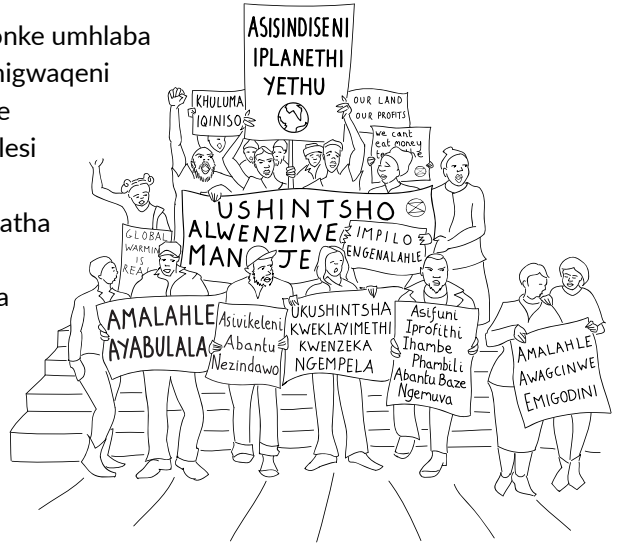 onke umhlaba
nigwaqeni
e
lesi
atha
a
ASISINDISENI
IPLANETHI
YETHU
KHULUMA
IQINISO
OUR LAND
OUR PROFITS
we cant
eat money
USHINTSHO
ALWENZIWE
MAN JE
IMPILO
ENGENALAHLE
GLOBAL
WARMIN
IS
REA
AMALAHLE
AYABULALA
Asivikeleni
Abantu
Nezindawo
UKUSHINTSHA
KWEKLAYIMETHI
KWENZEKA
NGEMPELA
Asifuni
Iprofithi
Ihambe
Phambili
Abantu Baze
Ngemuva
AMALAHLE
AWAGCINWE
EMIGODINI